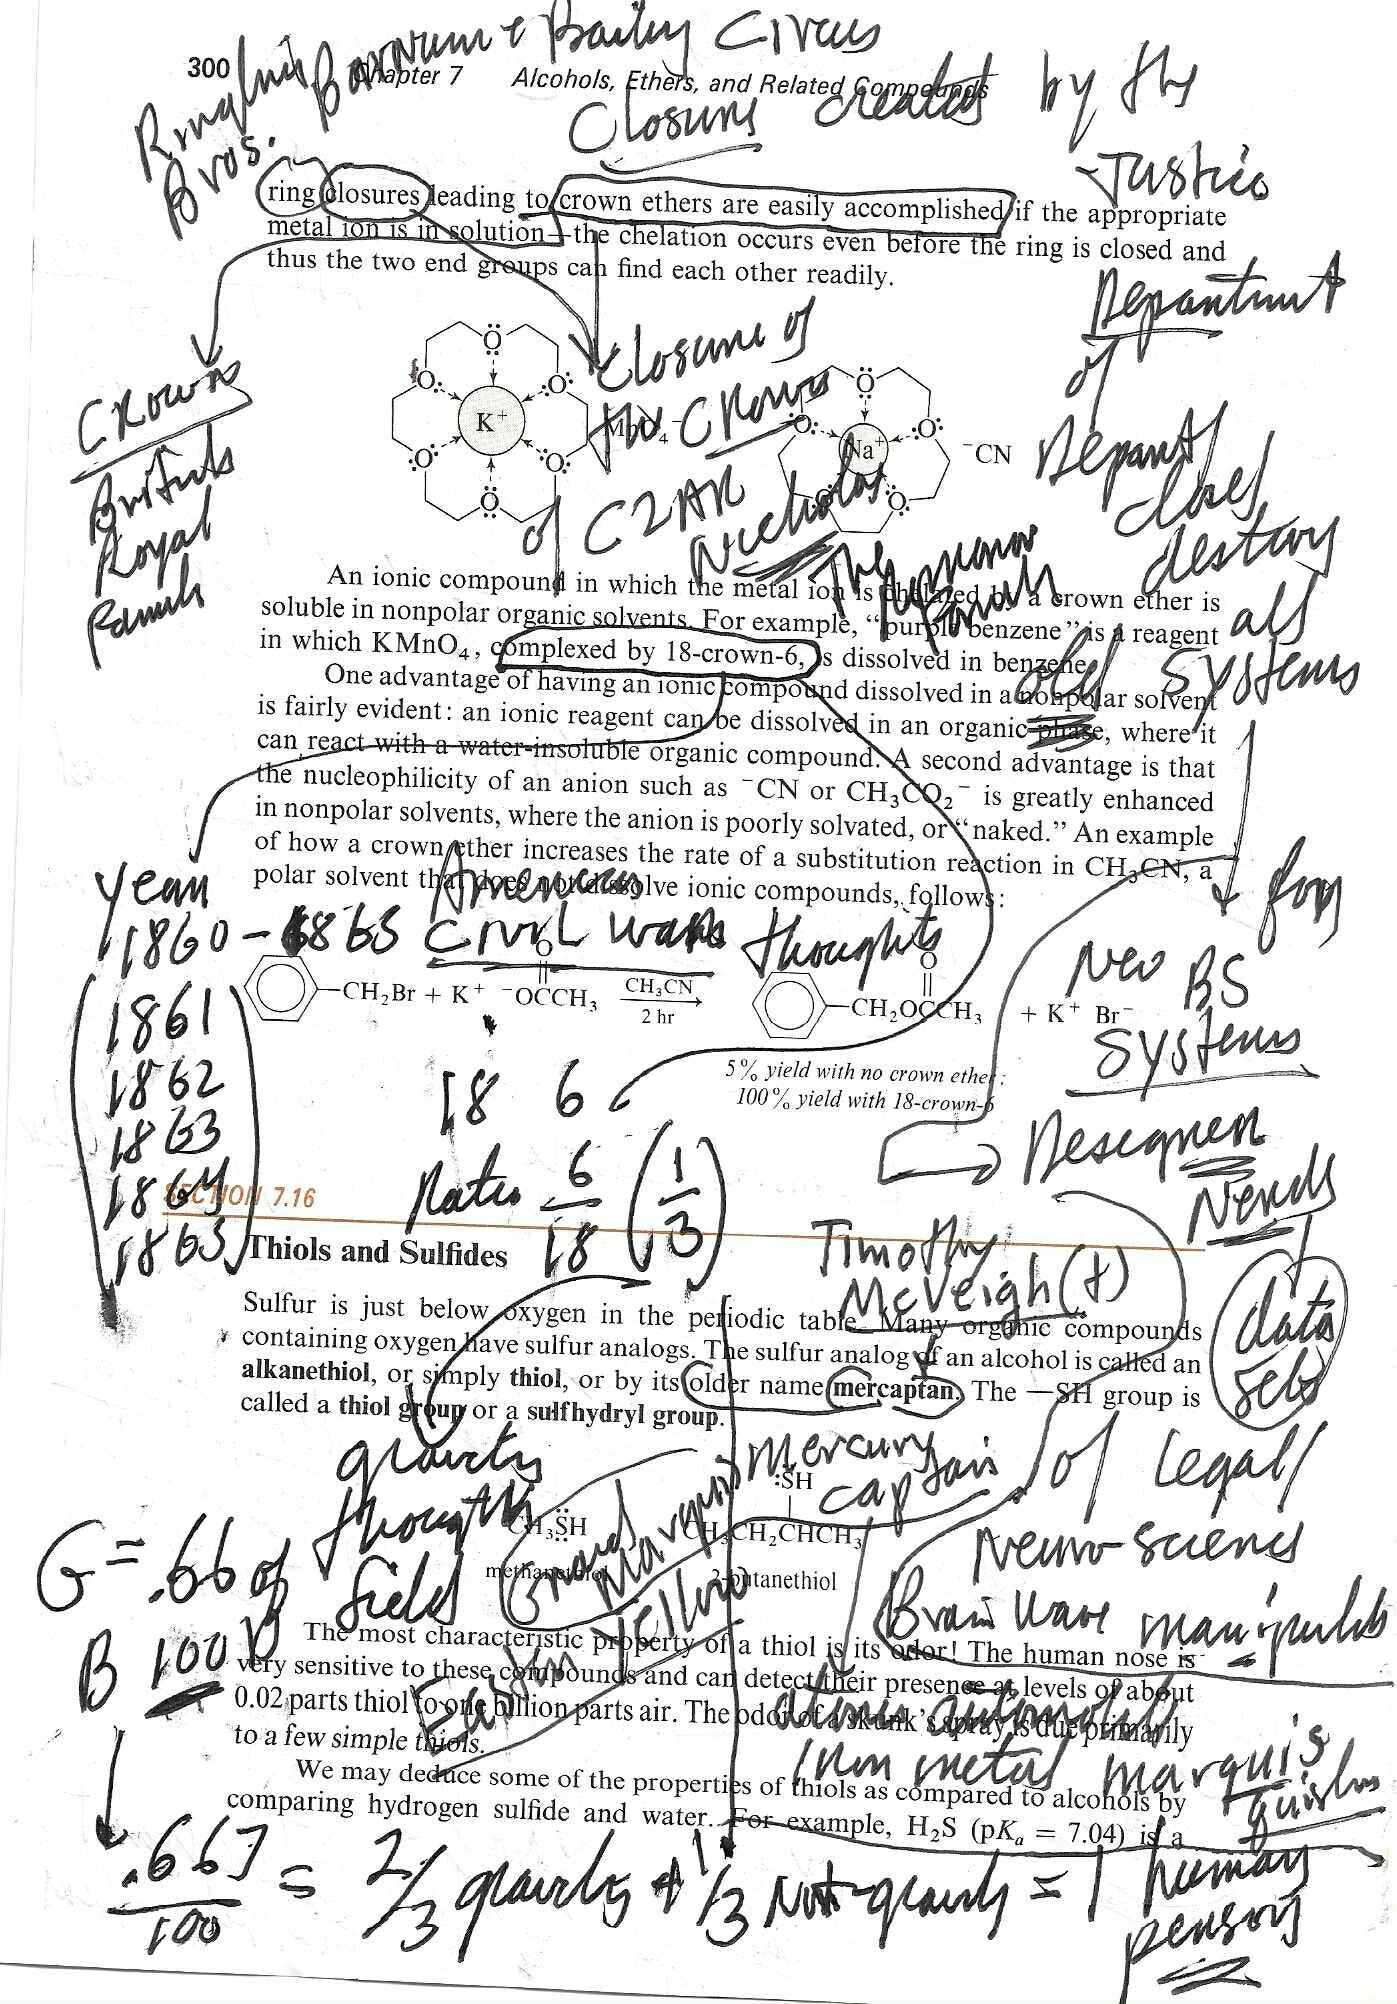 Ringling Barnum + Bailey Circus
Bros.
300 Chapter 7 Alcohols, Ethers, and Related Compounds
Closure created by the
Justice
ring closures leading to crown ethers are easily accomplished if the appropriate
metal ion is in solution—the chelation occurs even before the ring is closed and
thus the two end groups can find each other readily.
Department
of
Closure of
the Crown
of CZAR
Nicholas
The Romanov
Family
Crown
British
Royal
Family
K⁺ MnO₄⁻
Na⁺ ⁻CN
Depart
closes
destroy
all
old systems
An ionic compound in which the metal ion is chelated by a crown ether is
soluble in nonpolar organic solvents. For example, “purple benzene” is a reagent
in which KMnO₄, complexed by 18-crown-6, is dissolved in benzene.
One advantage of having an ionic compound dissolved in a nonpolar solvent
is fairly evident: an ionic reagent can be dissolved in an organic phase, where it
can react with a water-insoluble organic compound. A second advantage is that
the nucleophilicity of an anion such as ⁻CN or CH₃CO₂⁻ is greatly enhanced
in nonpolar solvents, where the anion is poorly solvated, or “naked.” An example
of how a crown ether increases the rate of a substitution reaction in CH₃CN, a
polar solvent that does not dissolve ionic compounds, follows:
year American
1860-1865 Civil War thoughts
for
Neo BS
Systems
1861
1862
1863
1864
1865
—CH₂Br + K⁺ ⁻OCCH₃ CH₃CN 2 hr —CH₂OCCH₃ + K⁺ Br⁻
O O
5% yield with no crown ether;
100% yield with 18-crown-6
18 6
Ratio 6/18 (1/3)
Designer
Nerds
data
sets
SECTION 7.16
Thiols and Sulfides
Timothy
McVeigh (t)
Sulfur is just below oxygen in the periodic table. Many organic compounds
containing oxygen have sulfur analogs. The sulfur analog of an alcohol is called an
alkanethiol, or simply thiol, or by its older name mercaptan. The —SH group is
called a thiol group or a sulfhydryl group.
gravity
thought
field
Mercury
captain
of legal
Neuro-science
Brain wave manipulab
G = .66 of
B 100
Grand Marquis
Eastern Yellow
CH₃SH
methanethiol
:SH
CH₃CH₂CHCH₃
2-butanethiol
The most characteristic property of a thiol is its odor! The human nose is
very sensitive to these compounds and can detect their presence at levels of about
0.02 parts thiol to one billion parts air. The odor of a skunk’s spray is due primarily
to a few simple thiols.
non metal marquis
We may deduce some of the properties of thiols as compared to alcohols by
comparing hydrogen sulfide and water. For example, H₂S (pKₐ = 7.04) is a
.667/100 = 2/3 gravity + 1/3 Not-gravity = 1 human
person